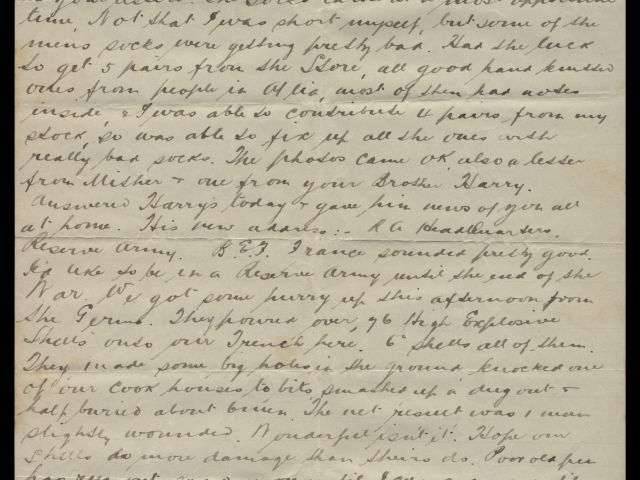 time, Not that I was short myself, but some of the
mens socks were getting pretty bad. Had the luck
to get 5 pairs from the Store, all good hand knitted
ones from people in Q'ld, most of them had notes
inside, & I was able to contribute 4 pairs from my
stock, so was able to fix up all the ones with
really bad socks. The photos came OK also a letter
from Mother & one from your Brother Harry.
Answered Harry's today & gave him news of you all
at home. His new address:- R A Headquarters,
Reserve Army. B.E.F. France sounded pretty good.
I'd like to be in a Reserve Army until the end of the
War. We got some hurry up this afternoon from
the Germs. They poured over 76 High Explosive
Shells onto our Trench here, 6" shells all of them.
They made some big holes in the ground knocked one
of our cook houses to bits smashed up a dug out &
half buried about 6 men. The net result was 1 man
slightly wounded. Wonderful isn't it. Hope our
shells do more damage than theirs do. Poor old